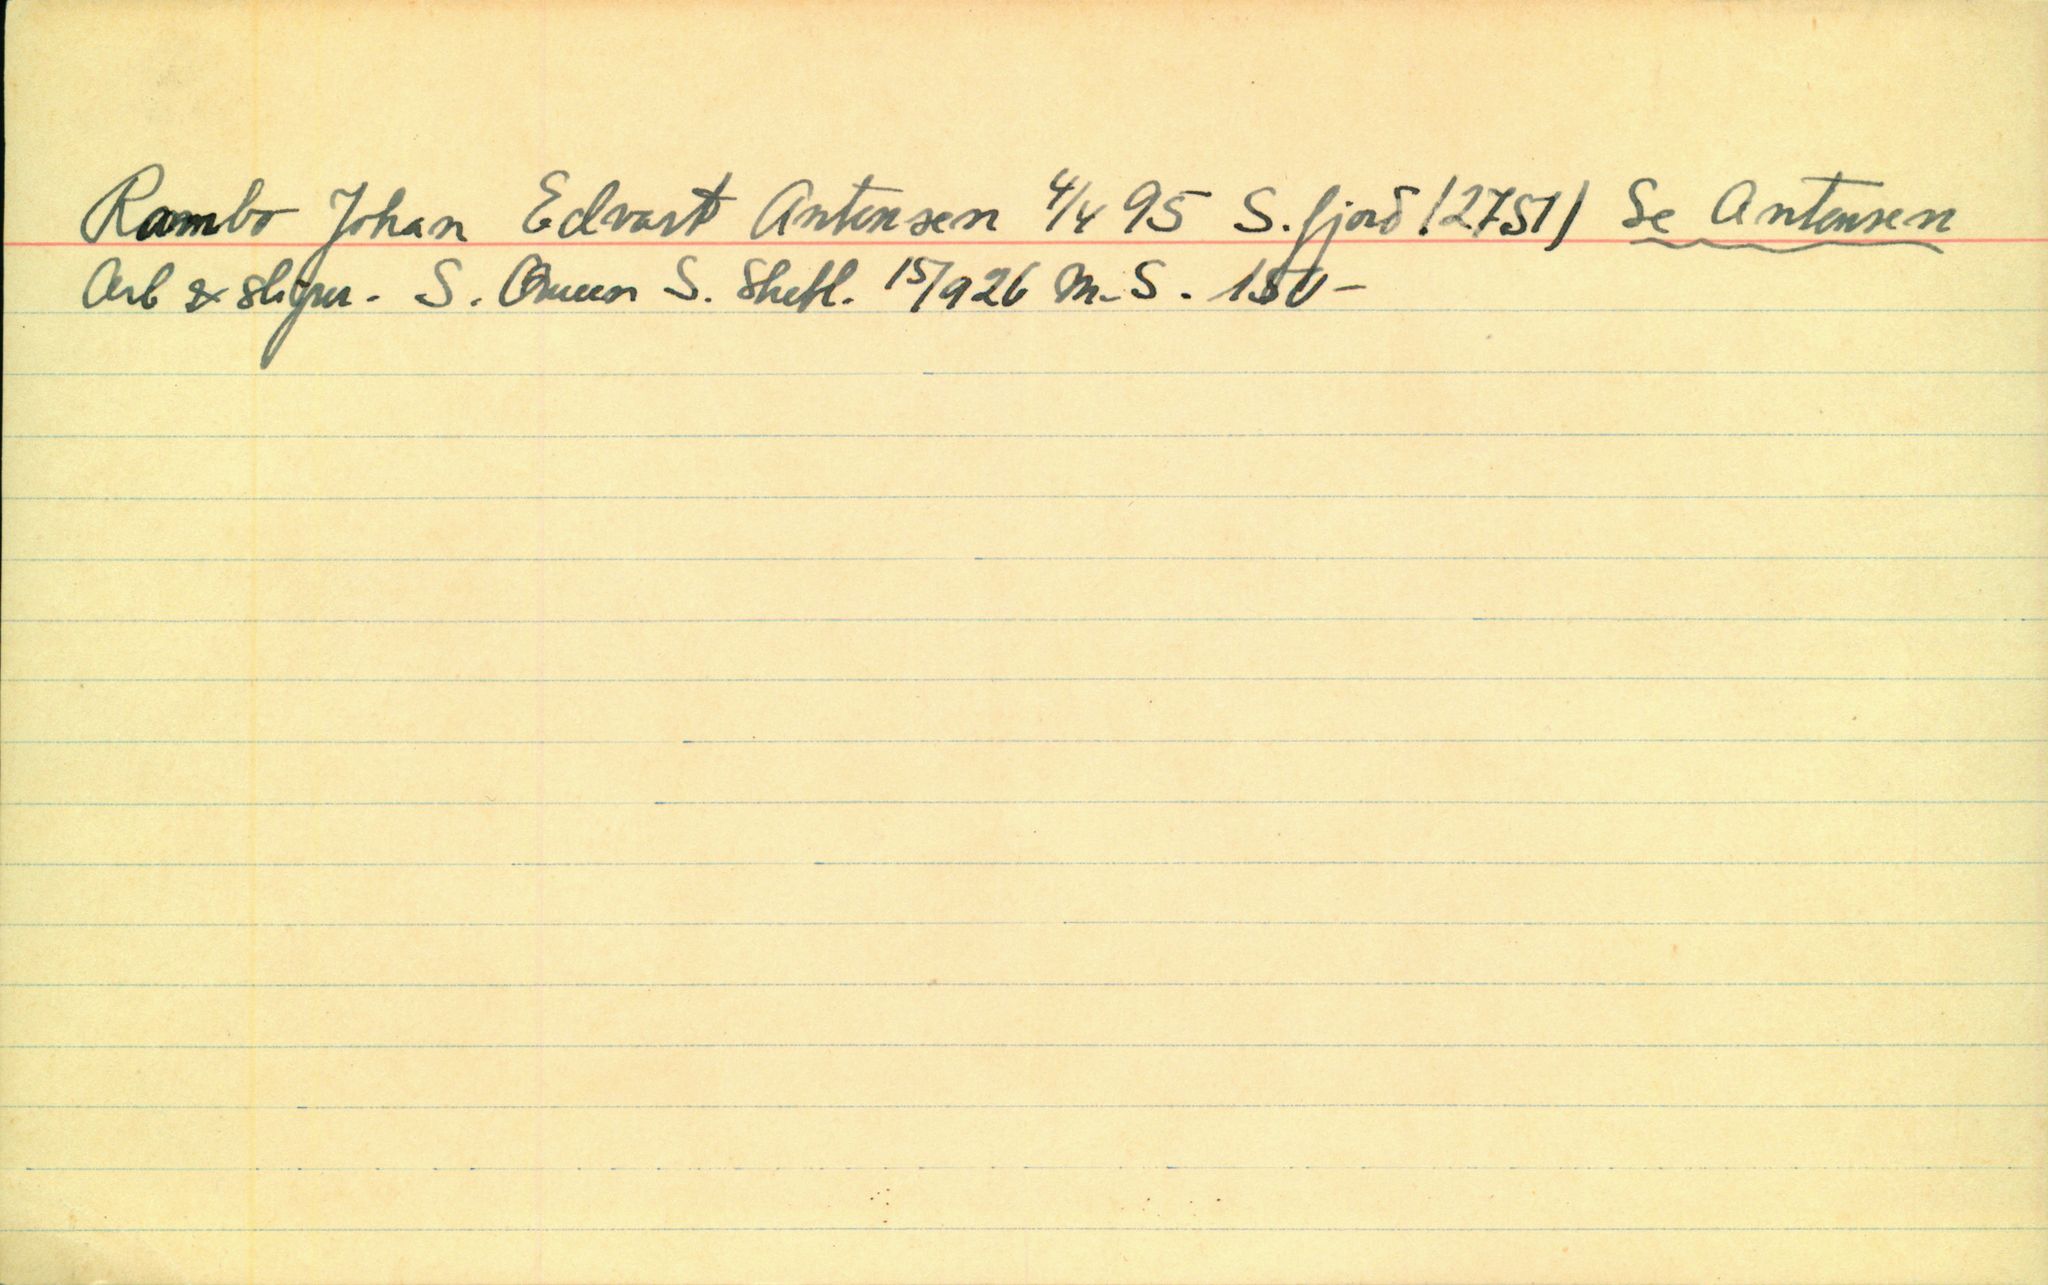 Rambo Johan Edvart Antonsen 4/4 95 S.fjord (2751) Se Antonsen
Arb S. Queen S. Shetl. 15/9 26 M.S. 150-